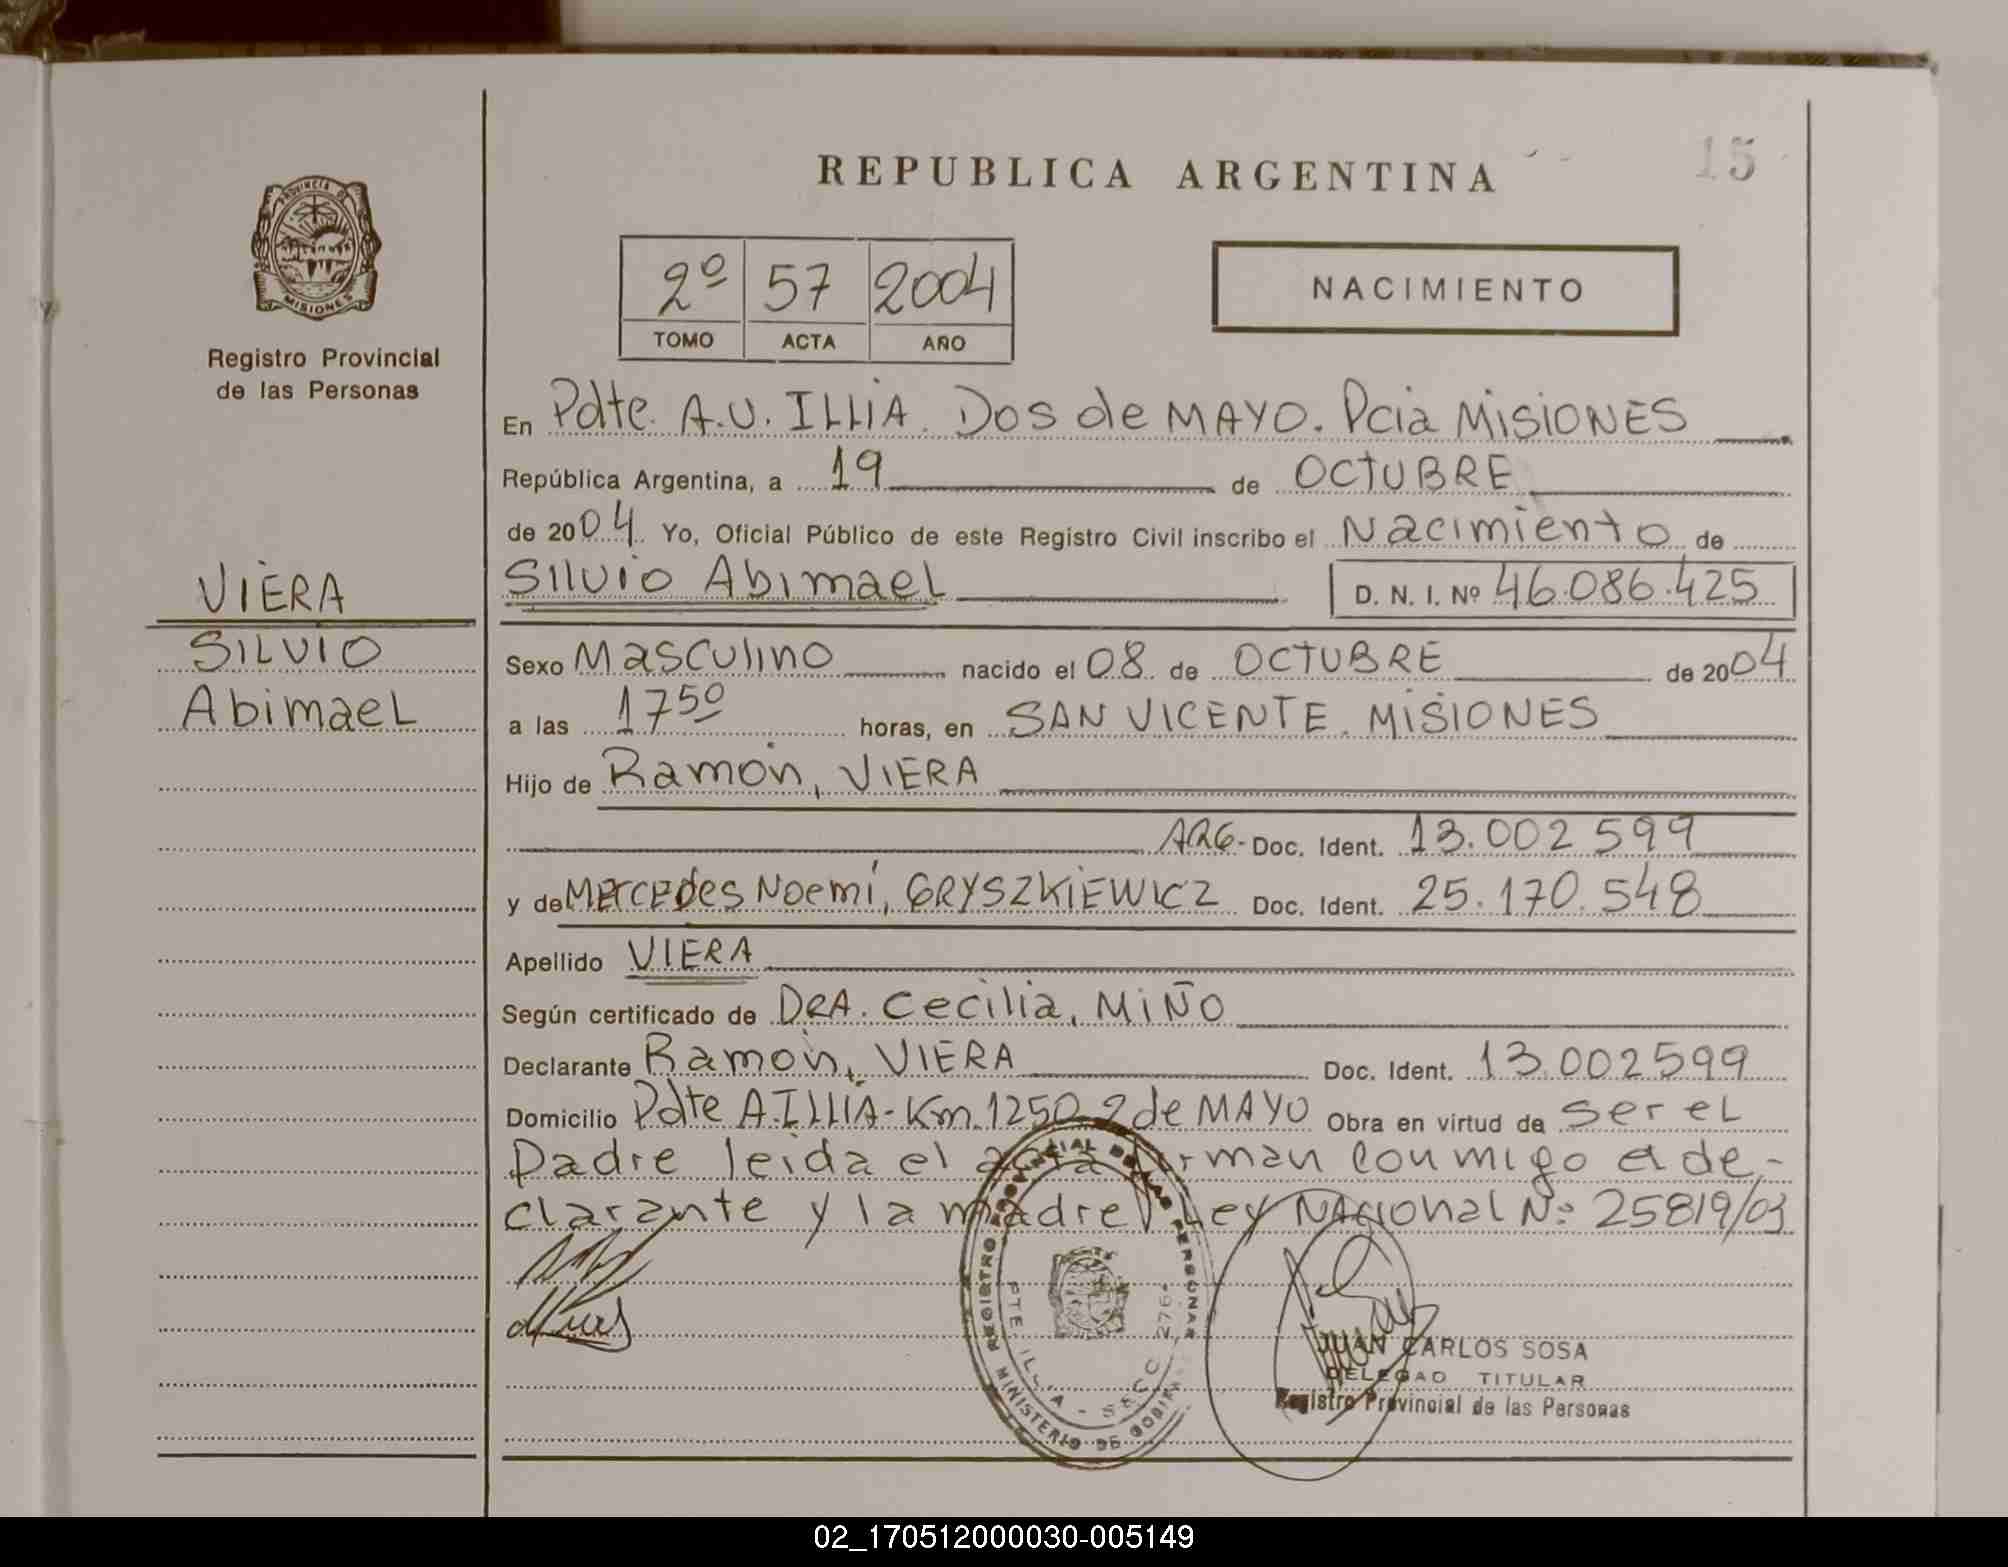 REPUBLICA ARGENTINA
15
PROVINCIA DE
MISIONES
Registro Provincial
de las Personas
2º 57 2004
TOMO ACTA AÑO
NACIMIENTO
En Pdte. A.U. ILLIA. Dos de MAYO. Pcia MISIONES
República Argentina, a 19 de OCTUBRE
de 2004. Yo, Oficial Público de este Registro Civil inscribo el Nacimiento de
VIERA
Silvio Abimael D. N. I. Nº 46.086.425
SILVIO
Sexo Masculino nacido el 08 de OCTUBRE de 2004
Abimael
a las 17 50 horas, en SAN VICENTE. MISIONES
Hijo de Ramón, VIERA
ARG- Doc. Ident. 13.002 599
y de Mercedes Noemí, GRYSZKIEWICZ Doc. Ident. 25.170.548
Apellido VIERA
Según certificado de DRA. Cecilia, MIÑO
Declarante Ramón, VIERA Doc. Ident. 13.002599
Domicilio Pdte A. ILLIA - Km. 1250 2 de MAYO Obra en virtud de ser el
Padre leida el acta firman conmigo el de-
clarante y la madre Ley Nacional Nº 25819/03
REGISTRO PROVINCIAL DE LAS PERSONAS
MINISTERIO DE GOBIERNO
PTE. ILLIA - SECC. 2764
JUAN CARLOS SOSA
DELEGADO TITULAR
Registro Provincial de las Personas
02_170512000030-005149